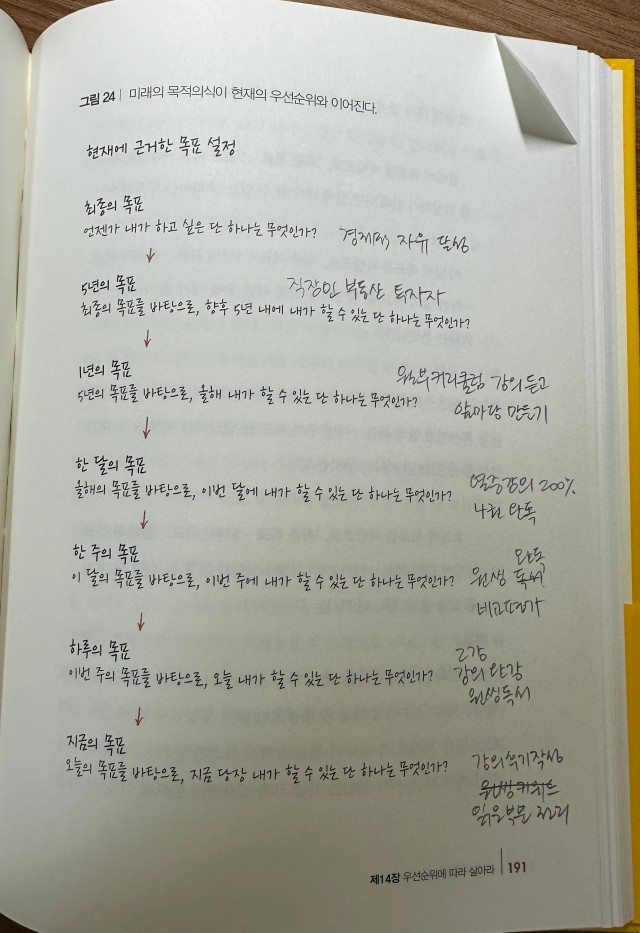 그림 24 | 미래의 목적의식이 현재의 우선순위와 이어진다.
현재에 근거한 목표 설정
최종의 목표
언젠가 내가 하고 싶은 단 하나는 무엇인가? 경제적 자유 달성
5년의 목표 직장인 부동산 투자자
최종의 목표를 바탕으로, 향후 5년 내에 내가 할 수 있는 단 하나는 무엇인가?
1년의 목표 월부커리큘럼 강의 듣고
5년의 목표를 바탕으로, 올해 내가 할 수 있는 단 하나는 무엇인가? 앞마당 만들기
한 달의 목표
올해의 목표를 바탕으로, 이번 달에 내가 할 수 있는 단 하나는 무엇인가? 열중강의 200%
완독
한 주의 목표 완독
이 달의 목표를 바탕으로, 이번 주에 내가 할 수 있는 단 하나는 무엇인가? 원씽 독서
비교평가
하루의 목표 2강
이번 주의 목표를 바탕으로, 오늘 내가 할 수 있는 단 하나는 무엇인가? 강의 완강
원씽독서
지금의 목표
오늘의 목표를 바탕으로, 지금 당장 내가 할 수 있는 단 하나는 무엇인가? 강의후기작성
원씽키워드
읽은부분 정리
제14장 우선순위에 따라 살아라 | 191